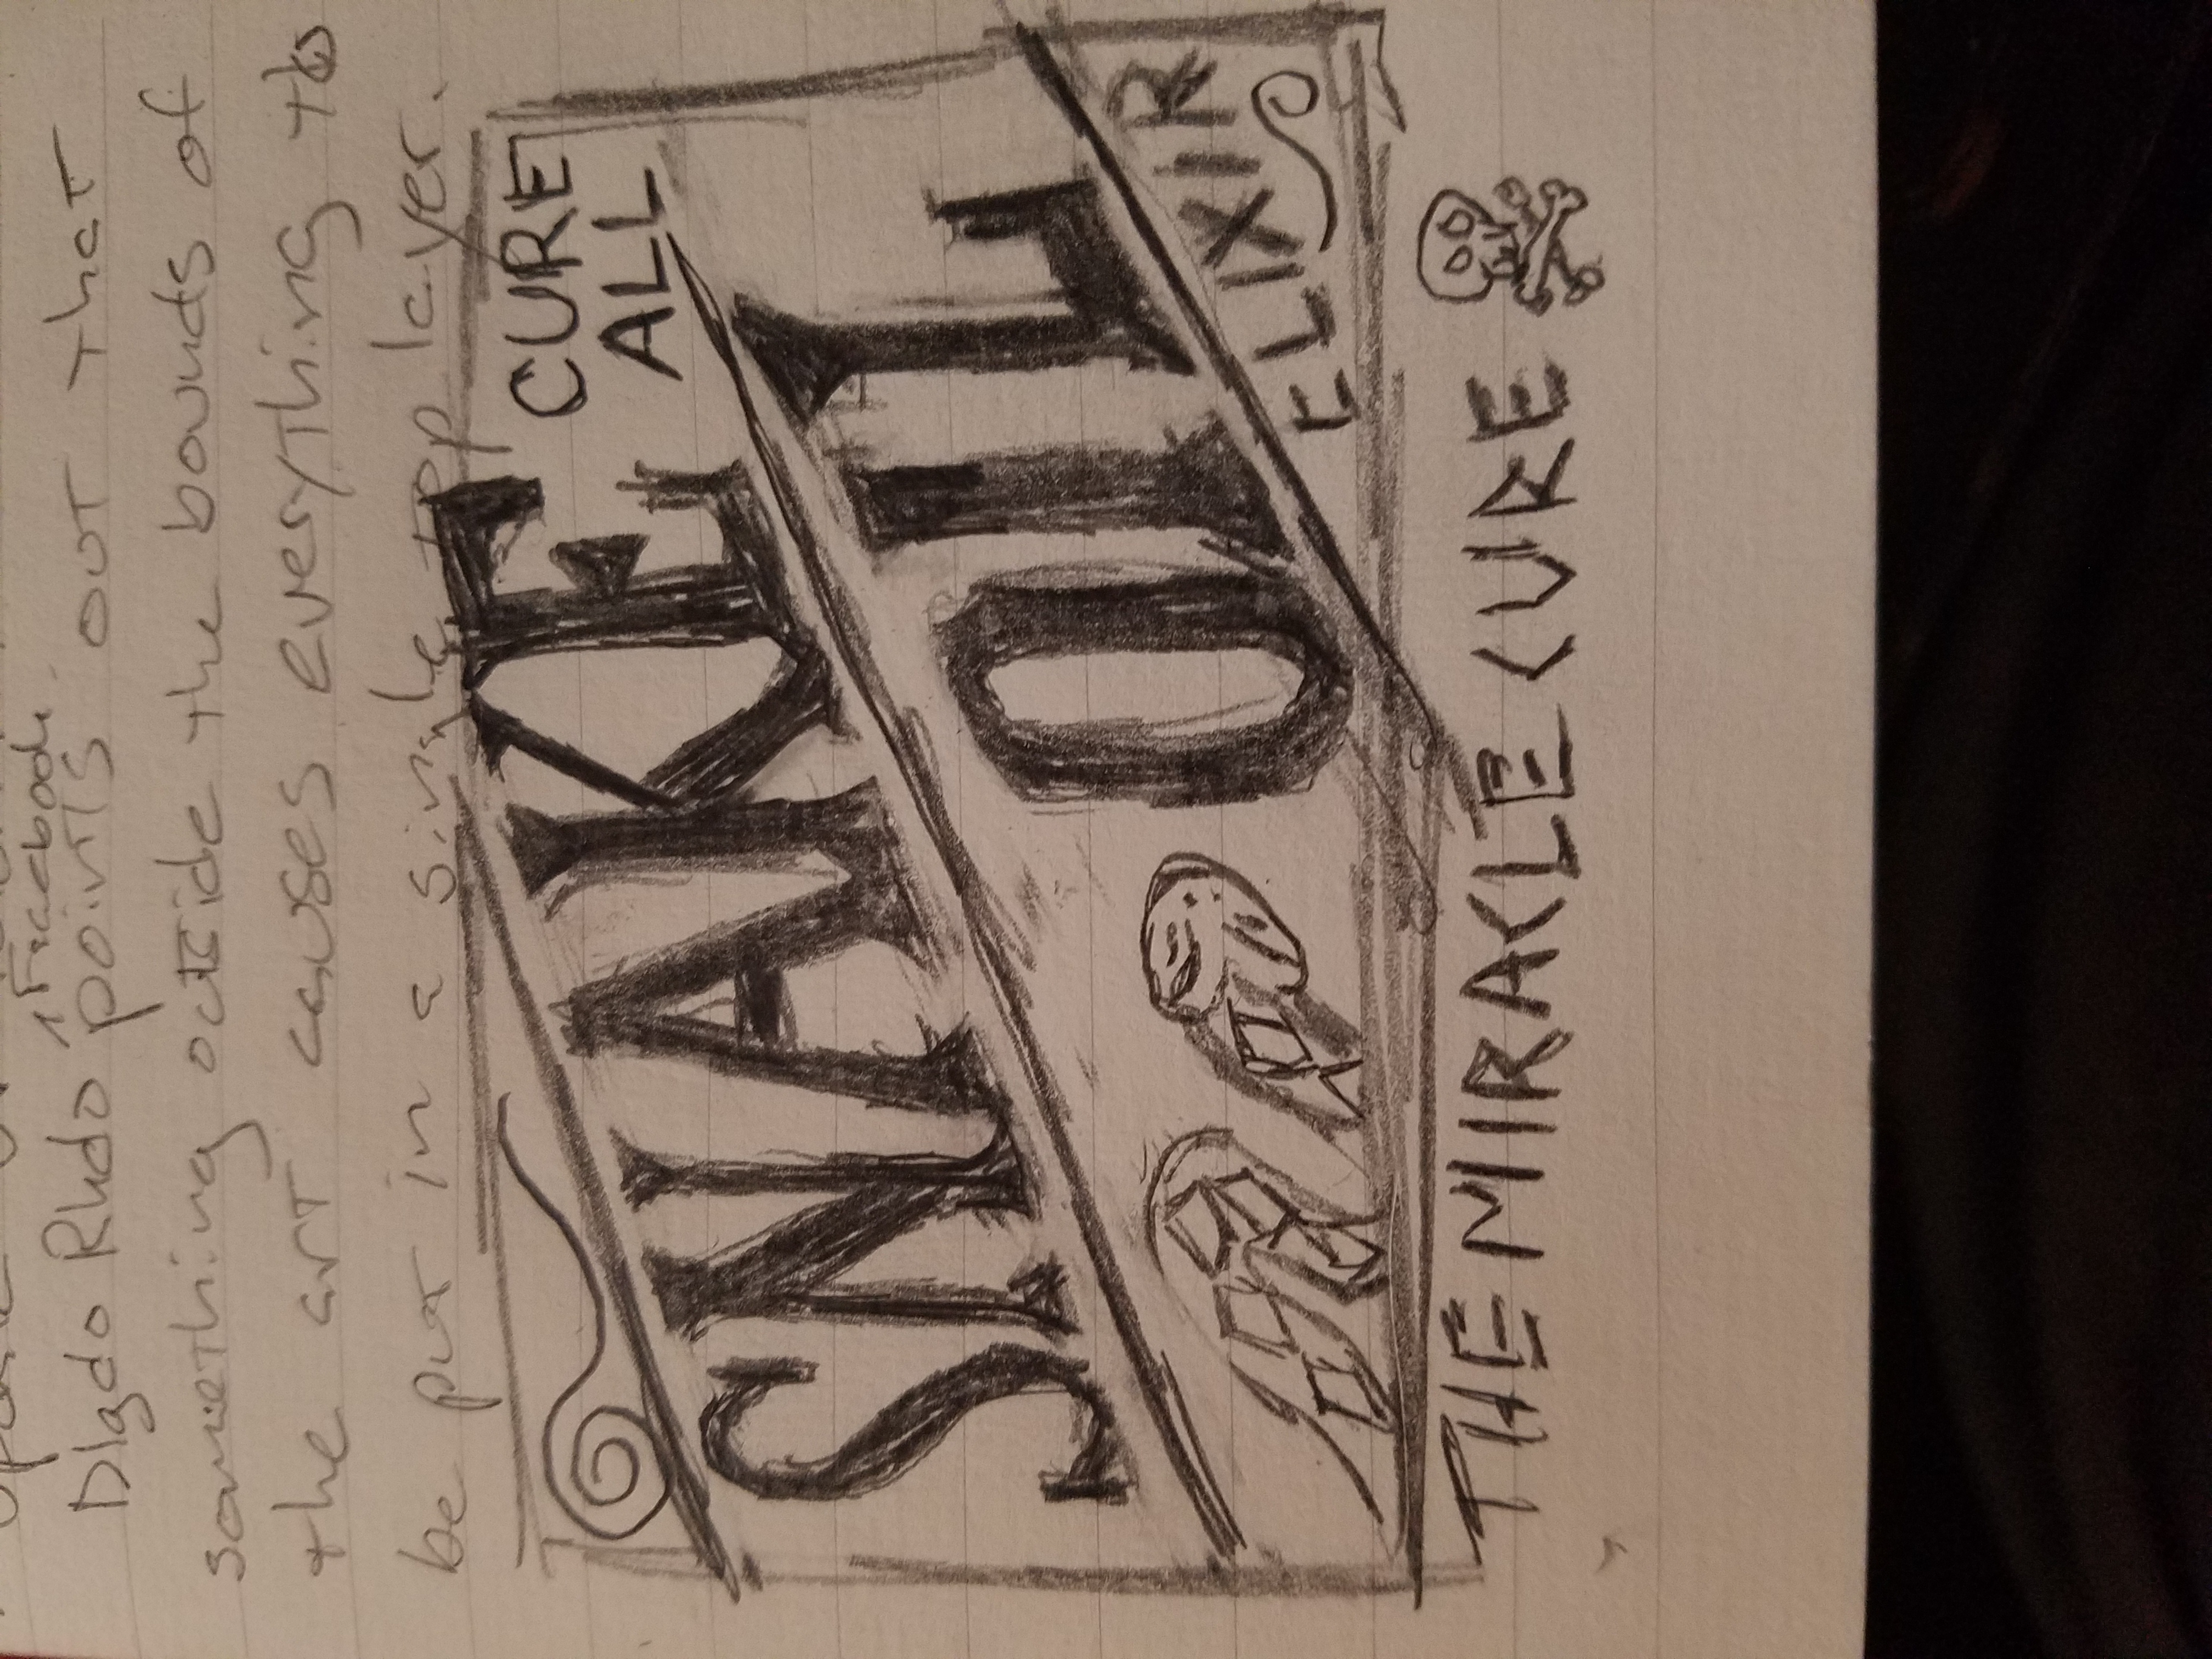 Facebook
Dlgdo Rhdo points out that
something outside the bounds of
the art causes everything to
be put in a single top layer.
SNAKE
CURE
ALL
OIL
ELIXIR
THE MIRACLE CURE